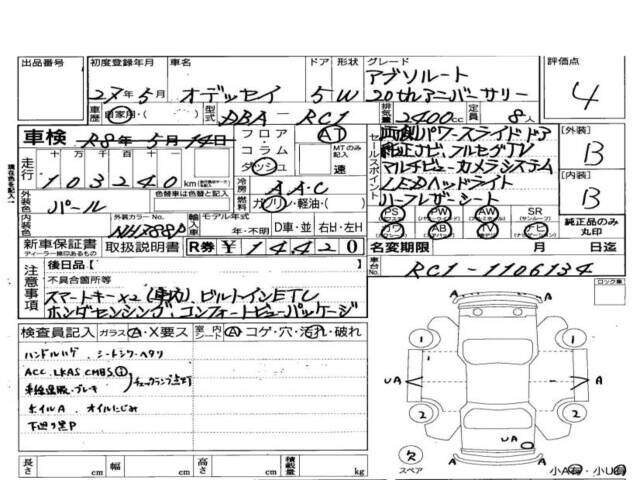 出品番号 初度登録年月 車名 ドア 形状 グレード 評価点
27年5月 オデッセイ 5W アブソルート
20thアニバーサリー 4
車歴 自家用・( ) 型式 DBA - RC1 排気量 2400cc 定員 8人
車検 R8年5月14日 フロア AT
コラム MTのみ記入
ダッシュ 速
セールスポイント 両側パワースライドドア
純正ナビ、フルセグTV
マルチビューカメラシステム
LEDヘッドライト
ハーフレザーシート
[外装] B
[内装] B
現在色を記入
走行 十万 千百十
103240 km
冷房 AAC
燃料 ガソリン・軽油・( )
外装色 パール 色替車は色替と記入
内装色 外装カラーNo. 輸入車 モデル年式
年・不明 D車・並 右H・左H
PS PW AW SR
(サンルーフ)
AB TV ナビ
純正品のみ丸印
新車保証書 取扱説明書 R券 ¥14420
ディーラー捺印あるもの
名変期限 月 日迄
車台No. RC1-1106134
注意事項 後日品[
不具合箇所等
スマートキー×2 ビルトインETC
ホンダセンシング、コンフォートビューパッケージ
ロック車
検査員記入 ガラス A・X要ス 室内シート A コゲ・穴・汚れ・破れ
ハンドルハゲ、シートシワ・ヘタリ
ACC LKAS CMBS
チェックランプ点灯
ホイルA オイルにじみ
1 1
UA A A
2 2
UA
A A
スペア
長さ cm 幅 cm 高さ cm 積載量 kg